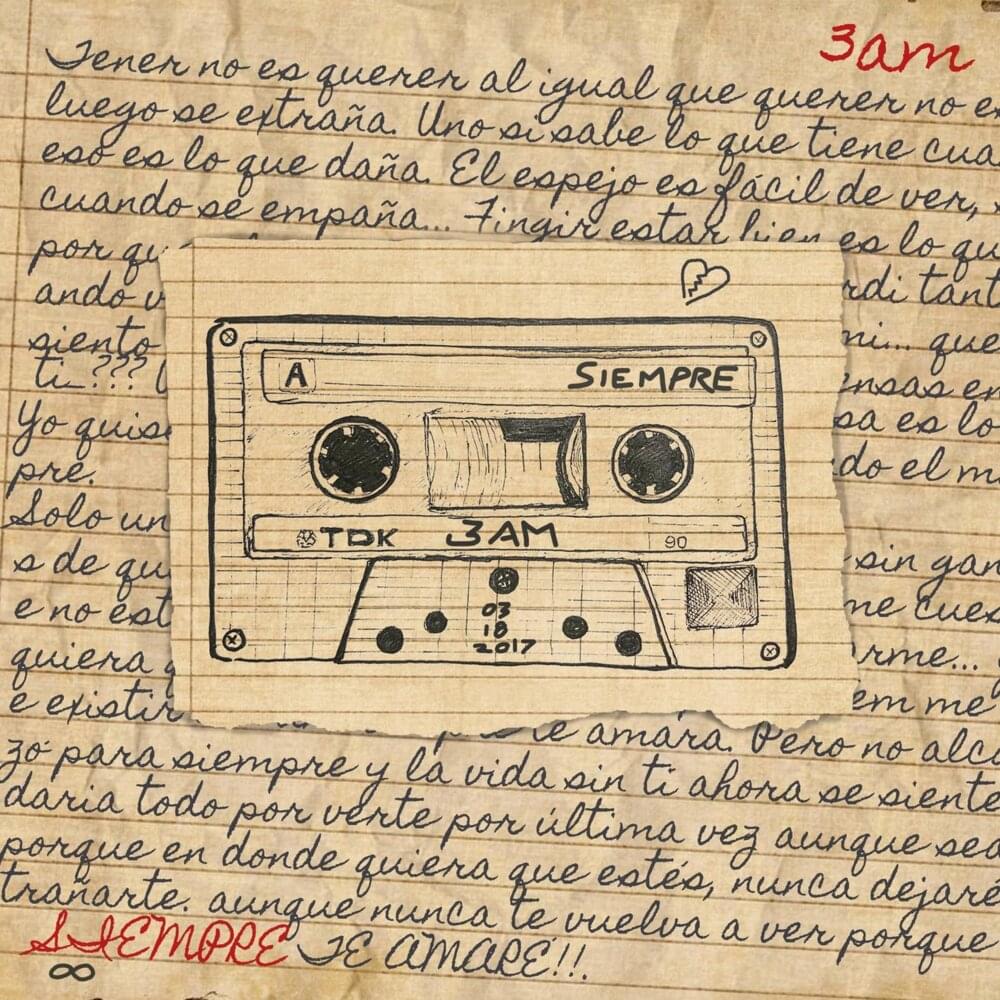 3am
Tener no es querer al igual que querer no es
luego se extraña. Uno si sabe lo que tiene cua
eso es lo que daña. El espejo es fácil de ver,
cuando se empaña... Fingir estar bien es lo qu
por qu
ando v rdi tant
siento mi... que
ti...??? ensas en
Yo quise sa es lo
pre. do el m
Solo un
s de qu sin gan
e no est me cues
quiera q rme...
e existir em me
te amara. Pero no alca
zó para siempre y la vida sin ti ahora se siente
daria todo por verte por última vez aunque sea
porque en donde quiera que estés, nunca dejaré
trañarte. aunque nunca te vuelva a ver porque
SIEMPRE TE AMARÉ!!.
∞
A SIEMPRE
TDK 3AM 90
03
18
2017